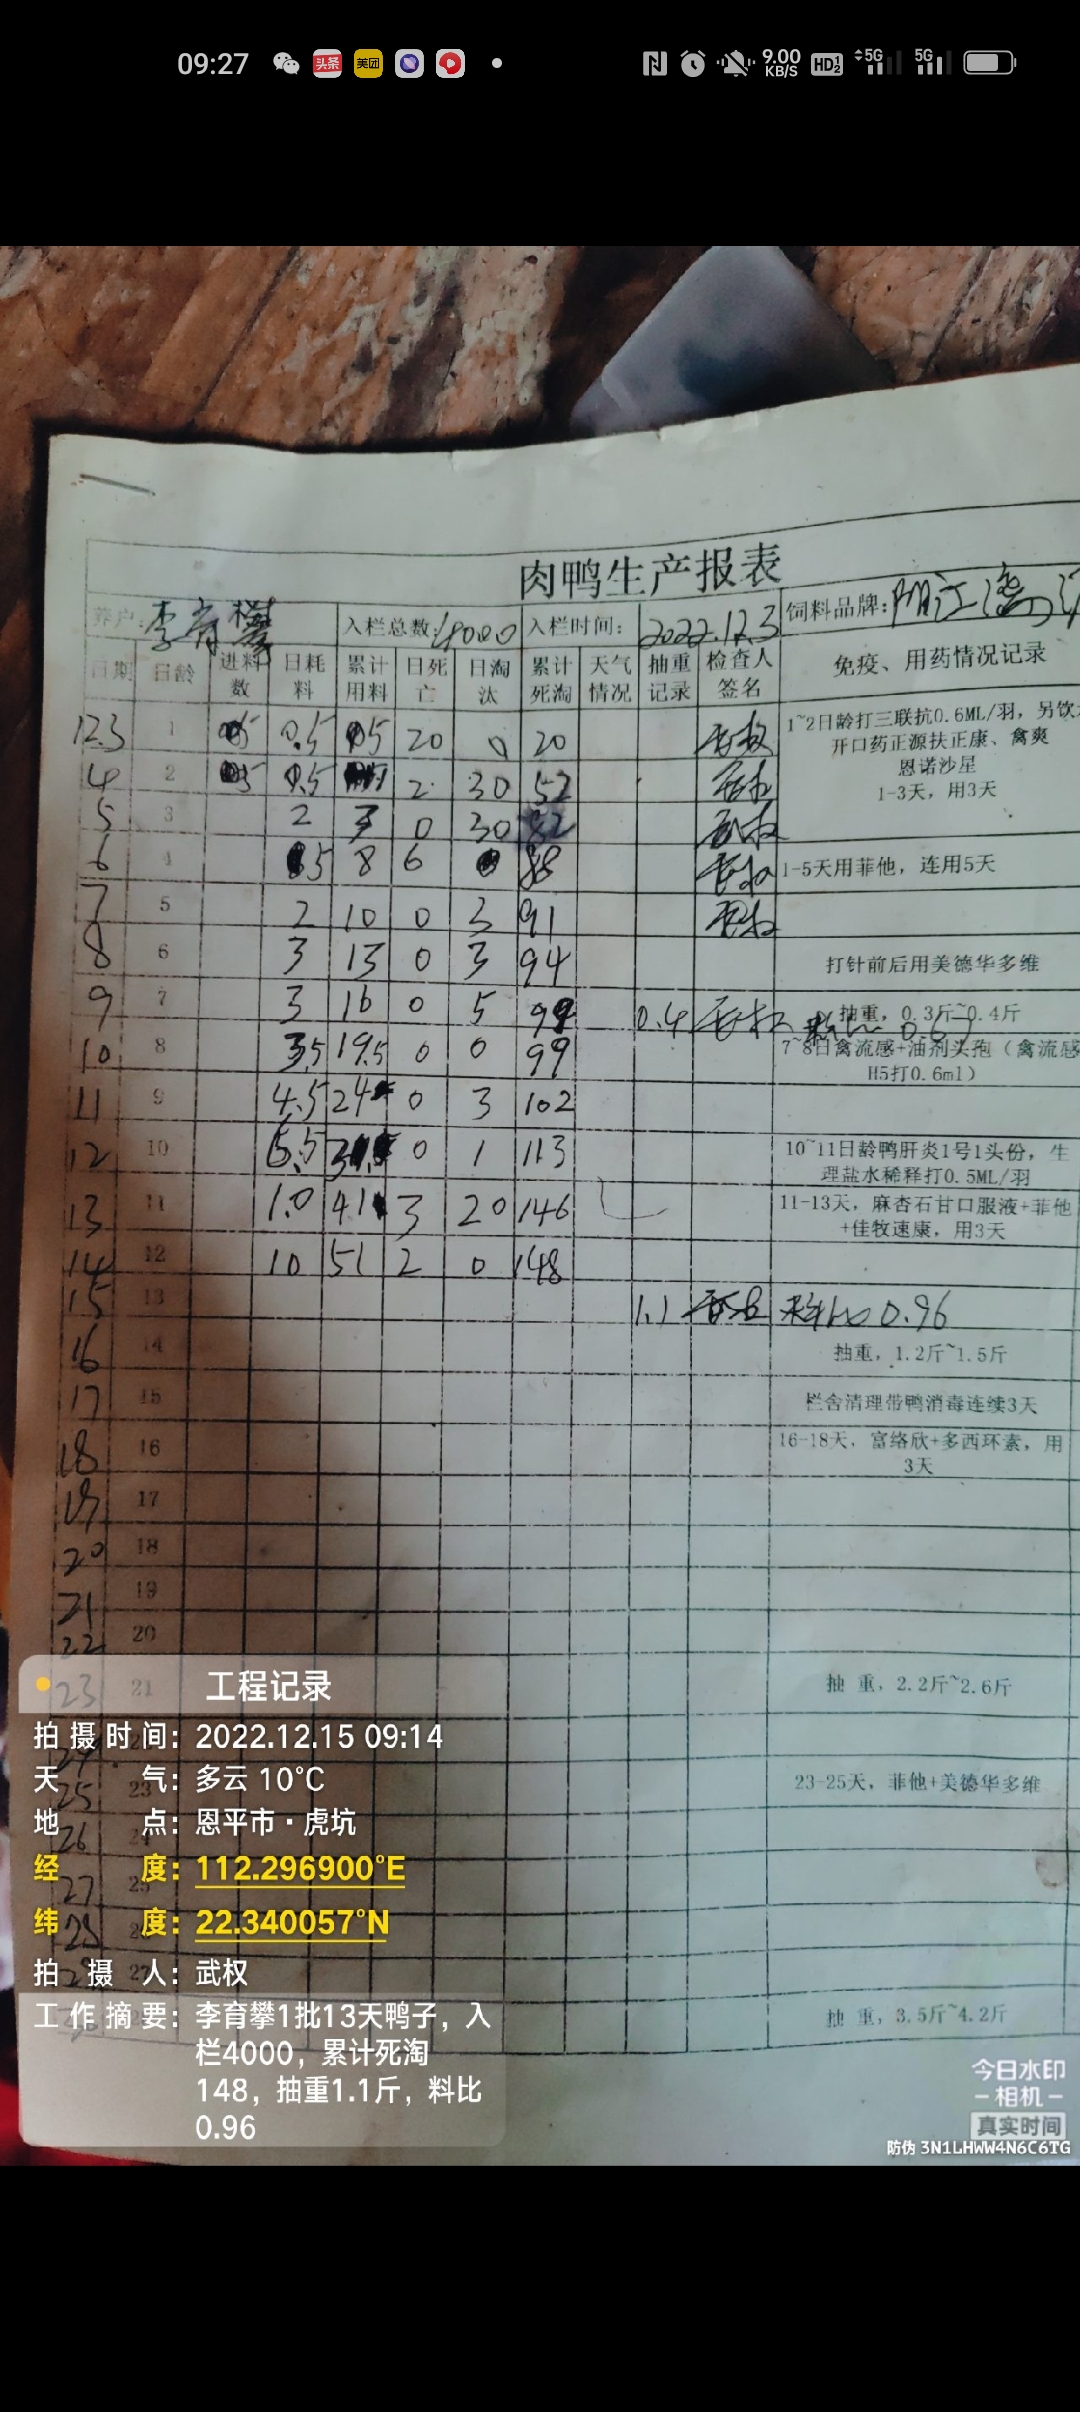 09:27 头条 美团 9.00 KB/S HD 5G 5G
肉鸭生产报表
养户: 李育攀 入栏总数: 4000 入栏时间: 2022.12.3 饲料品牌: 阳江
日期 日龄 进料数 日耗料 累计用料 日死亡 日淘汰 累计死淘 天气情况 抽重记录 检查人签名 免疫、用药情况记录
12.3 1 0.5 20 0 20 1~2日龄打三联抗0.6ML/羽, 另饮
开口药正源扶正康、禽爽
恩诺沙星
1-3天, 用3天
4 2 0.5 2 30 52
5 3 2 3 0 30 82
6 4 5 8 6 0 88 1-5天用菲他, 连用5天
7 5 2 10 0 3 91
8 6 3 13 0 3 94 打针前后用美德华多维
9 7 3 16 0 5 99 0.4 抽重, 0.3斤~0.4斤
料比 0.67
10 8 3.5 19.5 0 0 99 7~8日禽流感+油剂头孢(禽流感
H5打0.6ml)
11 9 4.5 24 0 3 102
12 10 6.5 0 1 113 10~11日龄鸭肝炎1号1头份, 生
理盐水稀释打0.5ML/羽
13 11 1.0 41 3 20 146 11-13天, 麻杏石甘口服液+菲他
+佳牧速康, 用3天
14 12 10 51 2 0 148
15 13 1.1 料比0.96
16 14 抽重, 1.2斤~1.5斤
17 15 栏舍清理带鸭消毒连续3天
18 16 16-18天, 富络欣+多西环素, 用
3天
19 17
20 18
21 19
22 20
23 21 抽 重, 2.2斤~2.6斤
24
25 23 23-25天, 菲他+美德华多维
26 24
27 25
28 26
27
抽 重, 3.5斤~4.2斤
工程记录
拍摄时间: 2022.12.15 09:14
天气: 多云 10°C
地点: 恩平市·虎坑
经度: 112.296900°E
纬度: 22.340057°N
拍摄人: 武权
工作摘要: 李育攀1批13天鸭子, 入
栏4000, 累计死淘
148, 抽重1.1斤, 料比
0.96
今日水印
-相机-
真实时间
防伪 3N1LHWW4N6C6TG